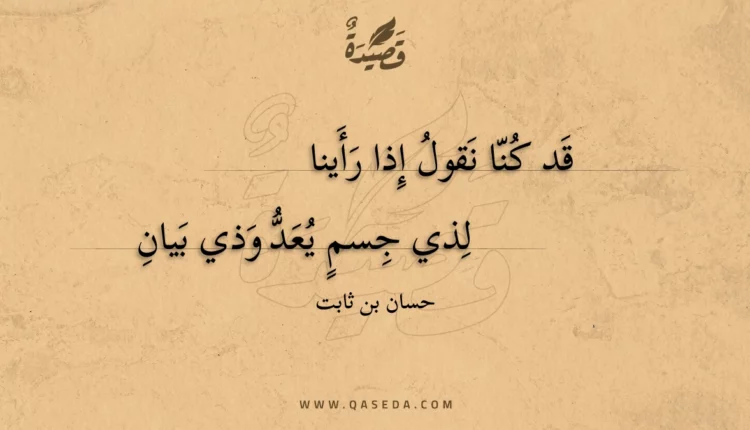 قَصِيدَةٌ
قَد كُنّا نَقولُ إِذا رَأَينا
لِذي جِسمٍ يُعَدُّ وَذي بَيانِ
حسان بن ثابت
WWW.QASEDA.COM